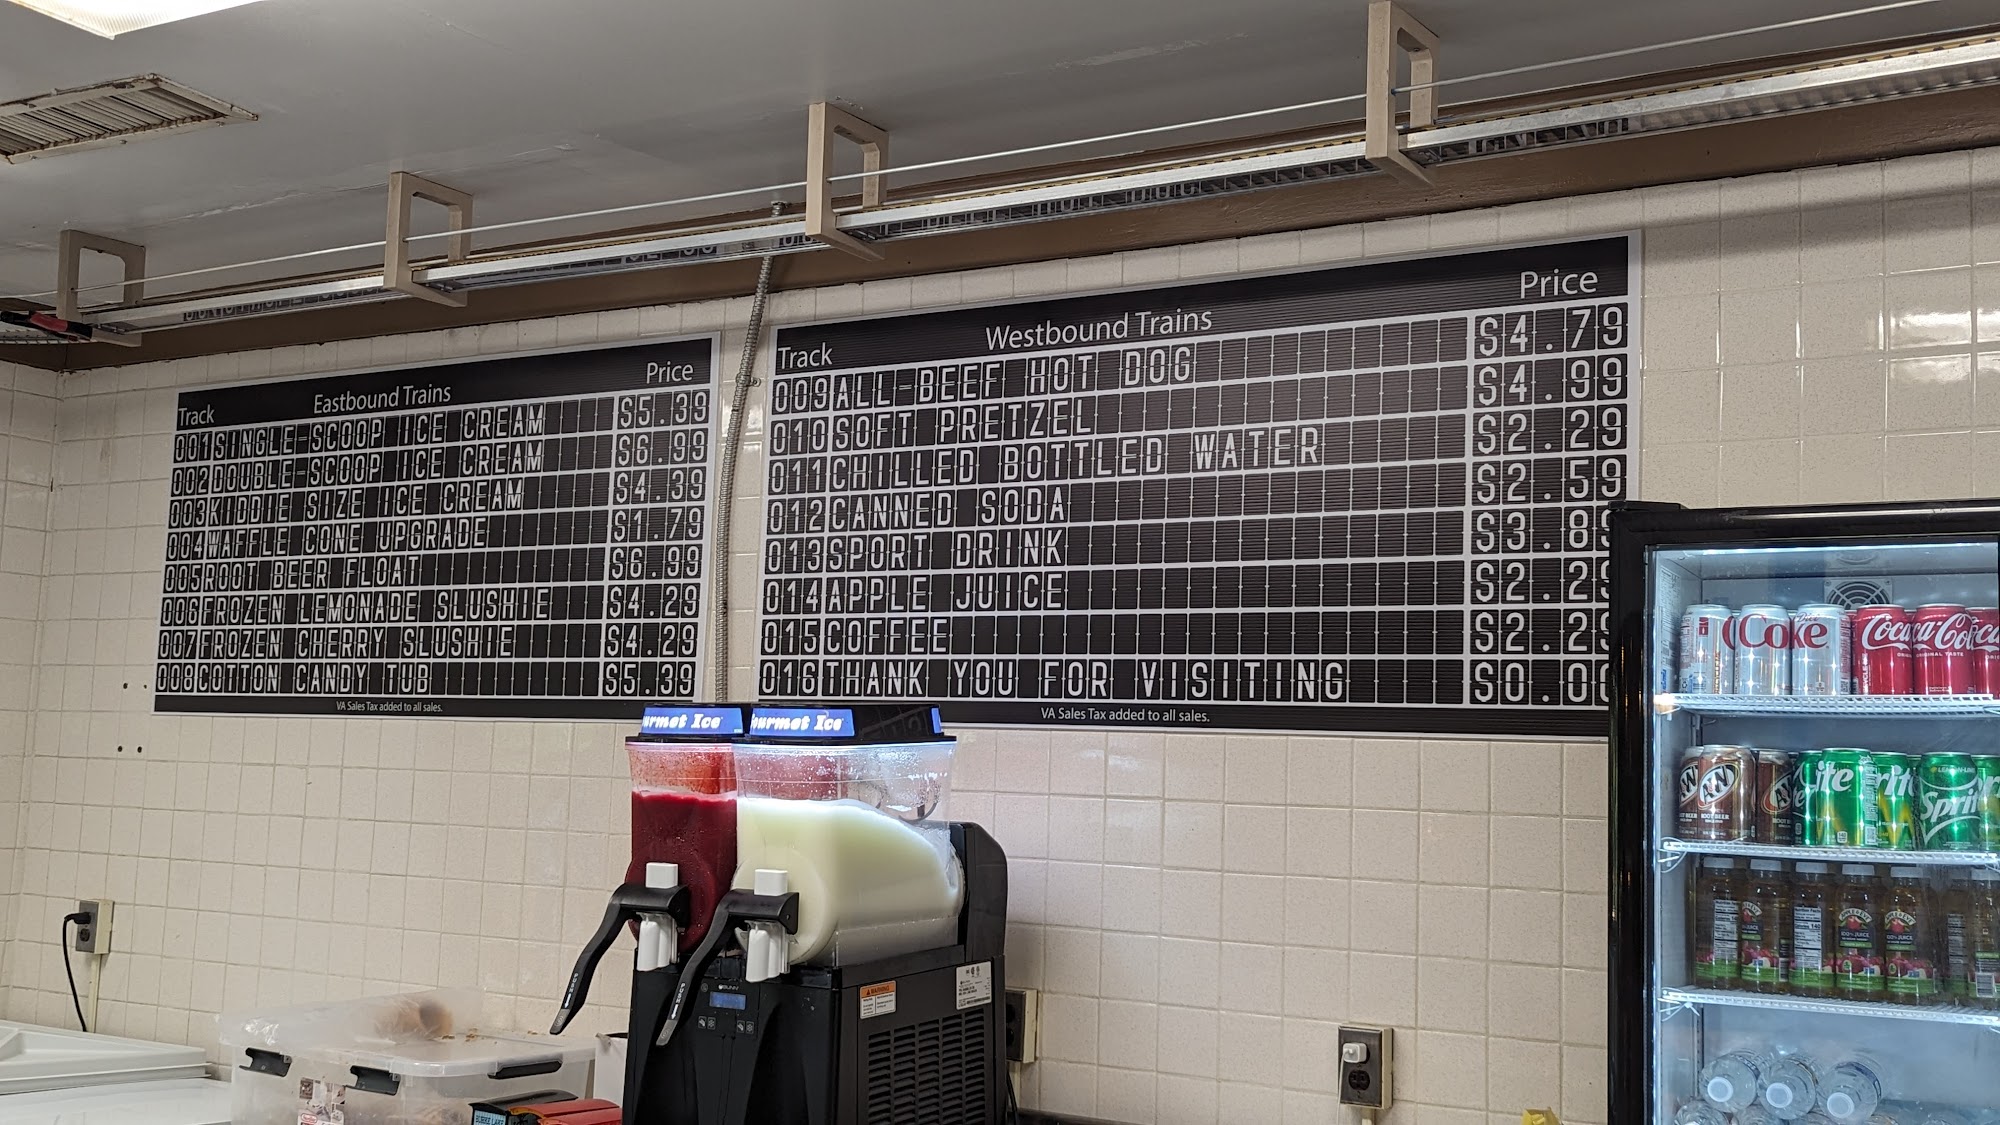 Eastbound Trains
Track Price
001 SINGLE-SCOOP ICE CREAM $5.39
002 DOUBLE-SCOOP ICE CREAM $6.99
003 KIDDIE SIZE ICE CREAM $4.39
004 WAFFLE CONE UPGRADE $1.79
005 ROOT BEER FLOAT $6.99
006 FROZEN LEMONADE SLUSHIE $4.29
007 FROZEN CHERRY SLUSHIE $4.29
008 COTTON CANDY TUB $5.39
VA Sales Tax added to all sales.
Westbound Trains
Track Price
009 ALL-BEEF HOT DOG $4.79
010 SOFT PRETZEL $4.99
011 CHILLED BOTTLED WATER $2.29
012 CANNED SODA $2.59
013 SPORT DRINK $3.89
014 APPLE JUICE $2.29
015 COFFEE $2.29
016 THANK YOU FOR VISITING $0.00
VA Sales Tax added to all sales.
urmet Ice
ourmet Ice
PUSH
PUSH
BUNN
WARNING
Coke
Coca-Cola
ORIGINAL TASTE
A&W
ROOT BEER
Sprite
100% JUICE